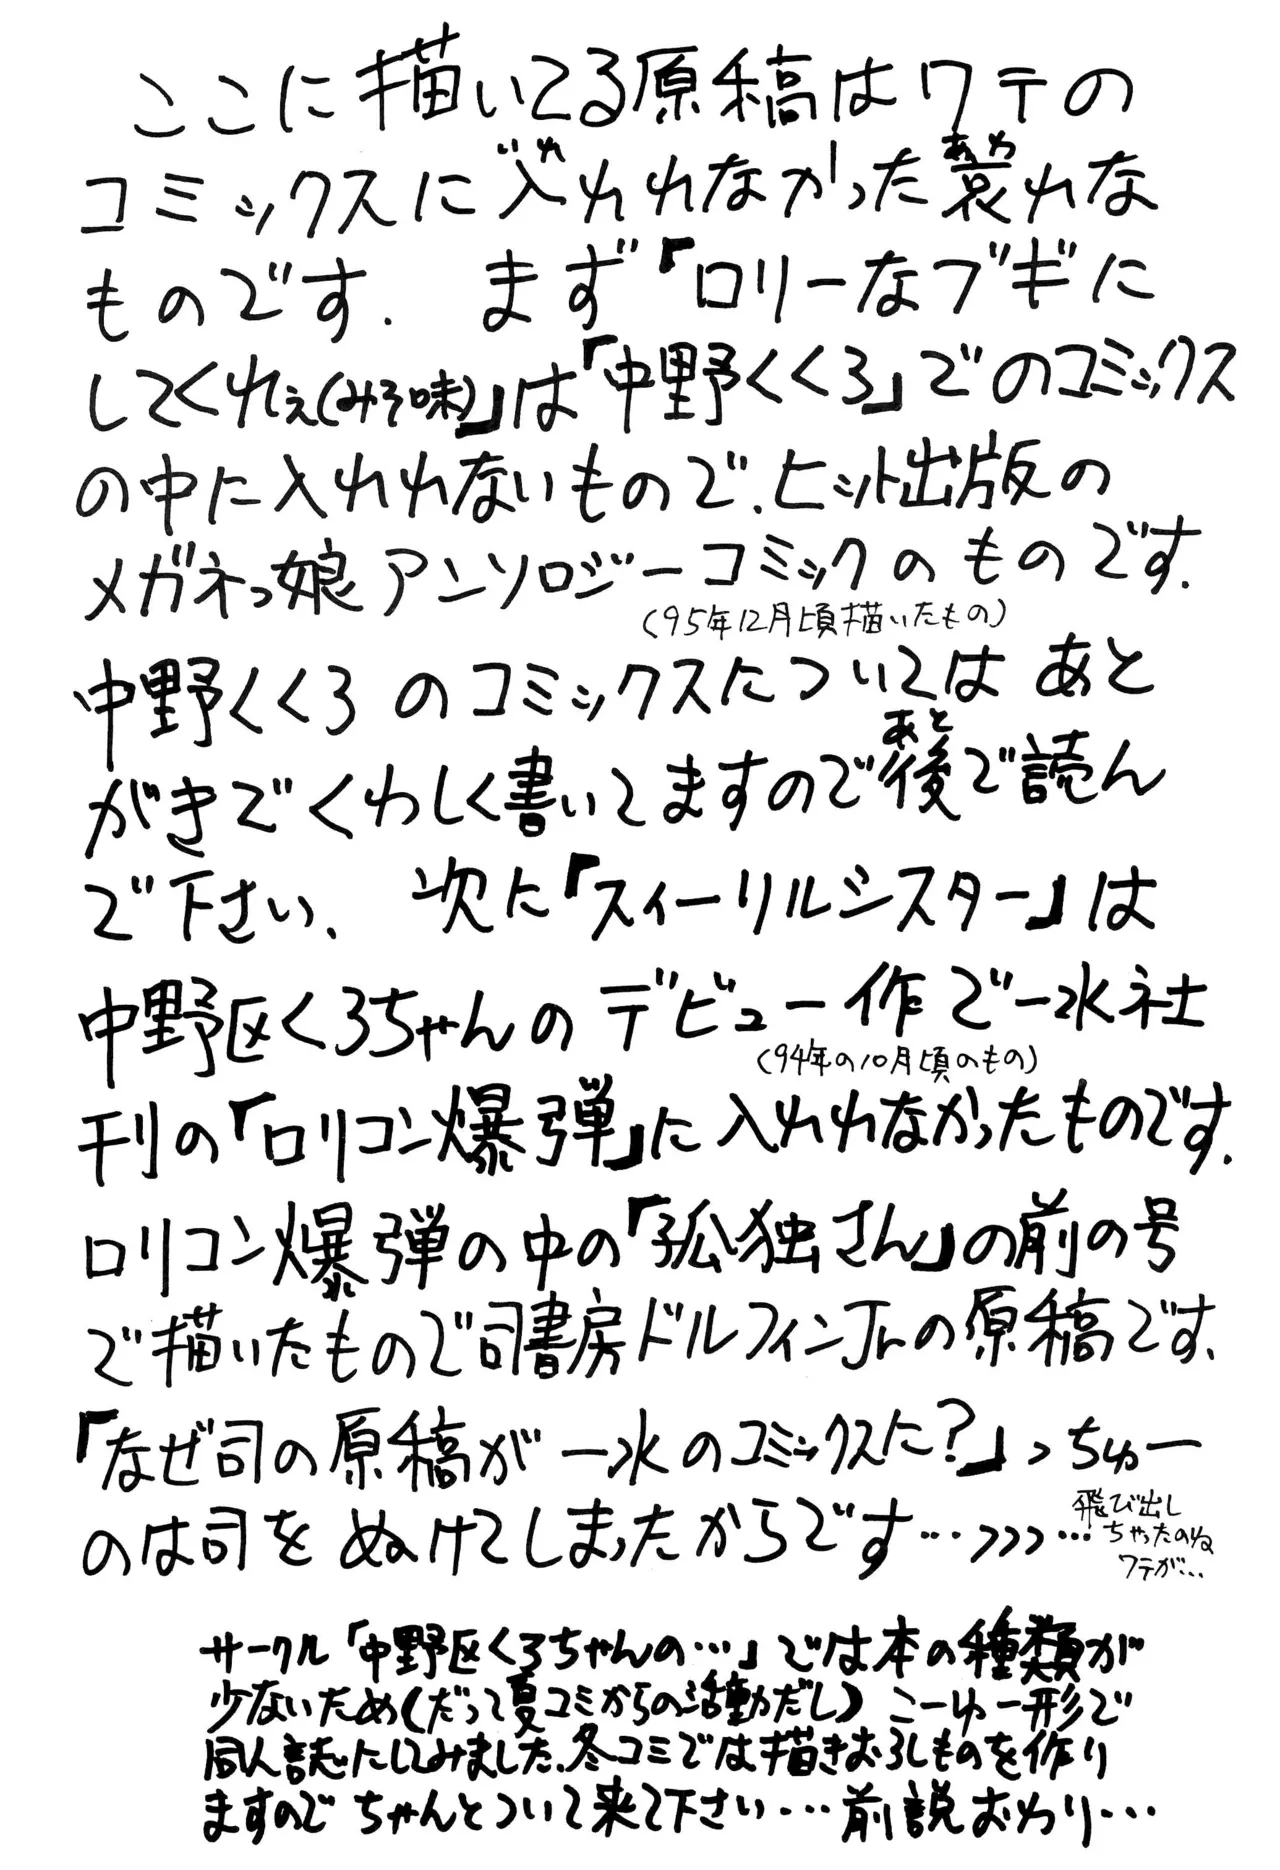 ここに描いてる原稿はワテの
コミックスに入(いれ)れれなかった哀(あわ)れな
ものです. まず「ロリーなブギに
してくれぇ(みそ味)」は「中野くくろ」でのコミックス
の中に入れれないもので、ヒット出版の
メガネっ娘アンソロジーコミックのものです.
(95年12月頃描いたもの)
中野くくろのコミックスについては あと
がきでくわしく書いてますので後(あと)で読ん
で下さい、 次に「スィーリルシスター」は
中野区くろちゃんのデビュー作で一水社
(94年の10月頃のもの)
刊の「ロリコン爆弾」に入れれなかったものです.
ロリコン爆弾の中の「孤独さん」の前の号
で描いたもので司書房ドルフィンJrの原稿です、
「なぜ司の原稿が一水のコミックスに?」っちゅー
のは司をぬけてしまったからです…>>>…
飛び出し
ちゃったのね
ワテが…
サークル「中野区くろちゃんの…」では本の種類が
少ないため(だって夏コミからの活動だし) こーゆー形で
同人誌にしてみました、冬コミでは描きおろしものを作り
ますので ちゃんとついて来て下さい… 前説おわり…